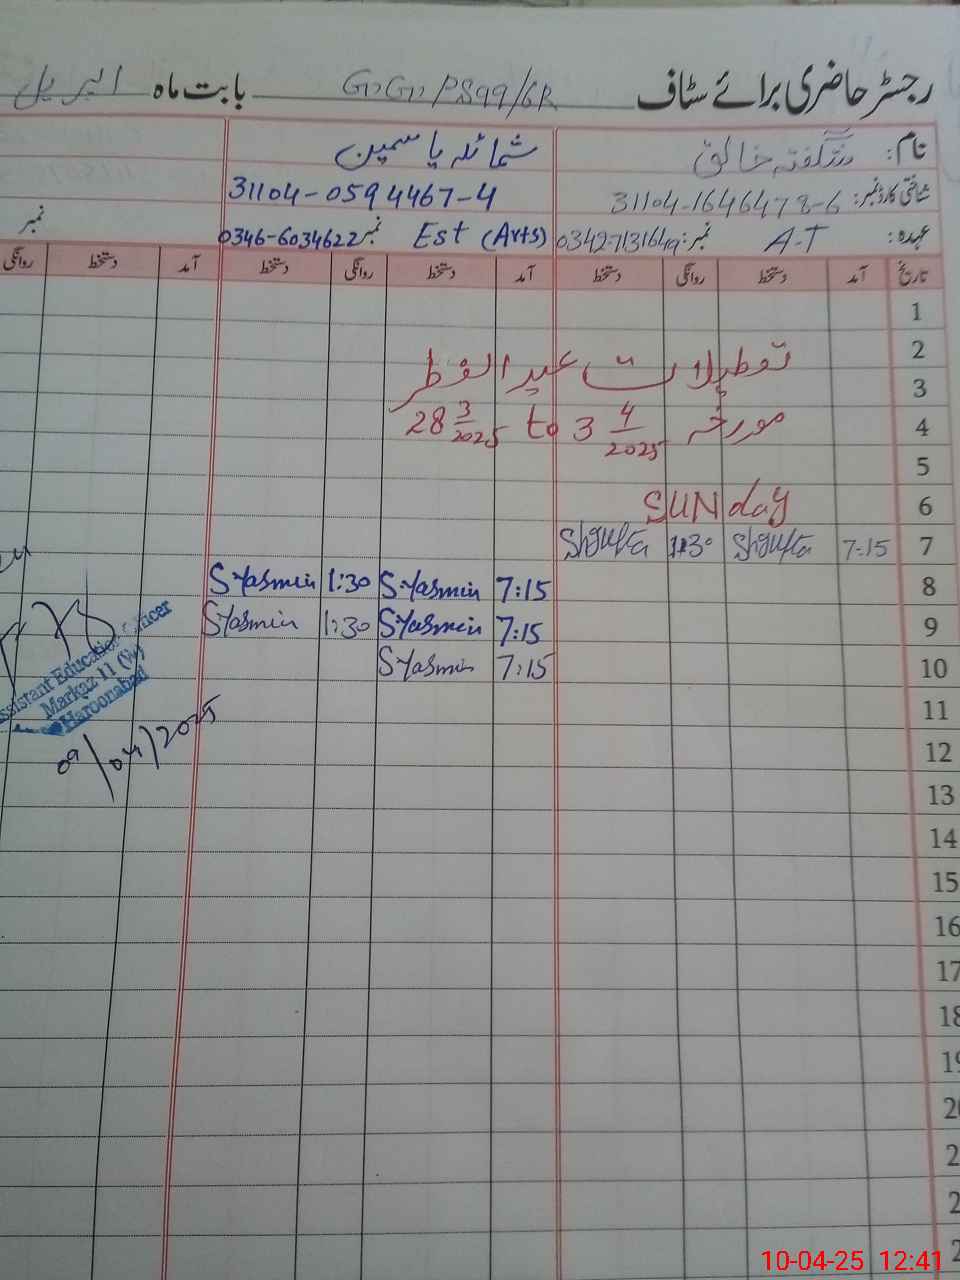 رجسٹر حاضری برائے سٹاف GGPS 99/6R بابت ماہ اپریل
نام: شگفتہ خالق شمائلہ یاسمین
شناختی کارڈ نمبر: 31104-1646478-6 31104-0594467-4
عہدہ: A-T نمبر: 0342-7131649 Est (Arts) نمبر 0346-6034622 نمبر
تاریخ آمد دستخط روانگی دستخط آمد دستخط روانگی دستخط آمد دستخط روانگی
1
2
تعطیلات عید الفطر
3
مورخہ 28 3/2025 to 3 4/2025
4
5
6 SUNday
7 7:15 Shgufta 1:30 Shgufta
8 7:15 S.Yasmin 1:30 S.Yasmin
9 7:15 S.Yasmin 1:30 S.Yasmin
10 7:15 S.Yasmin
Assistant Education Officer
Markaz 11 (W)
Haroonabad
09/04/2025
11
12
13
14
15
16
17
18
19
20
2
2
2
10-04-25 12:41